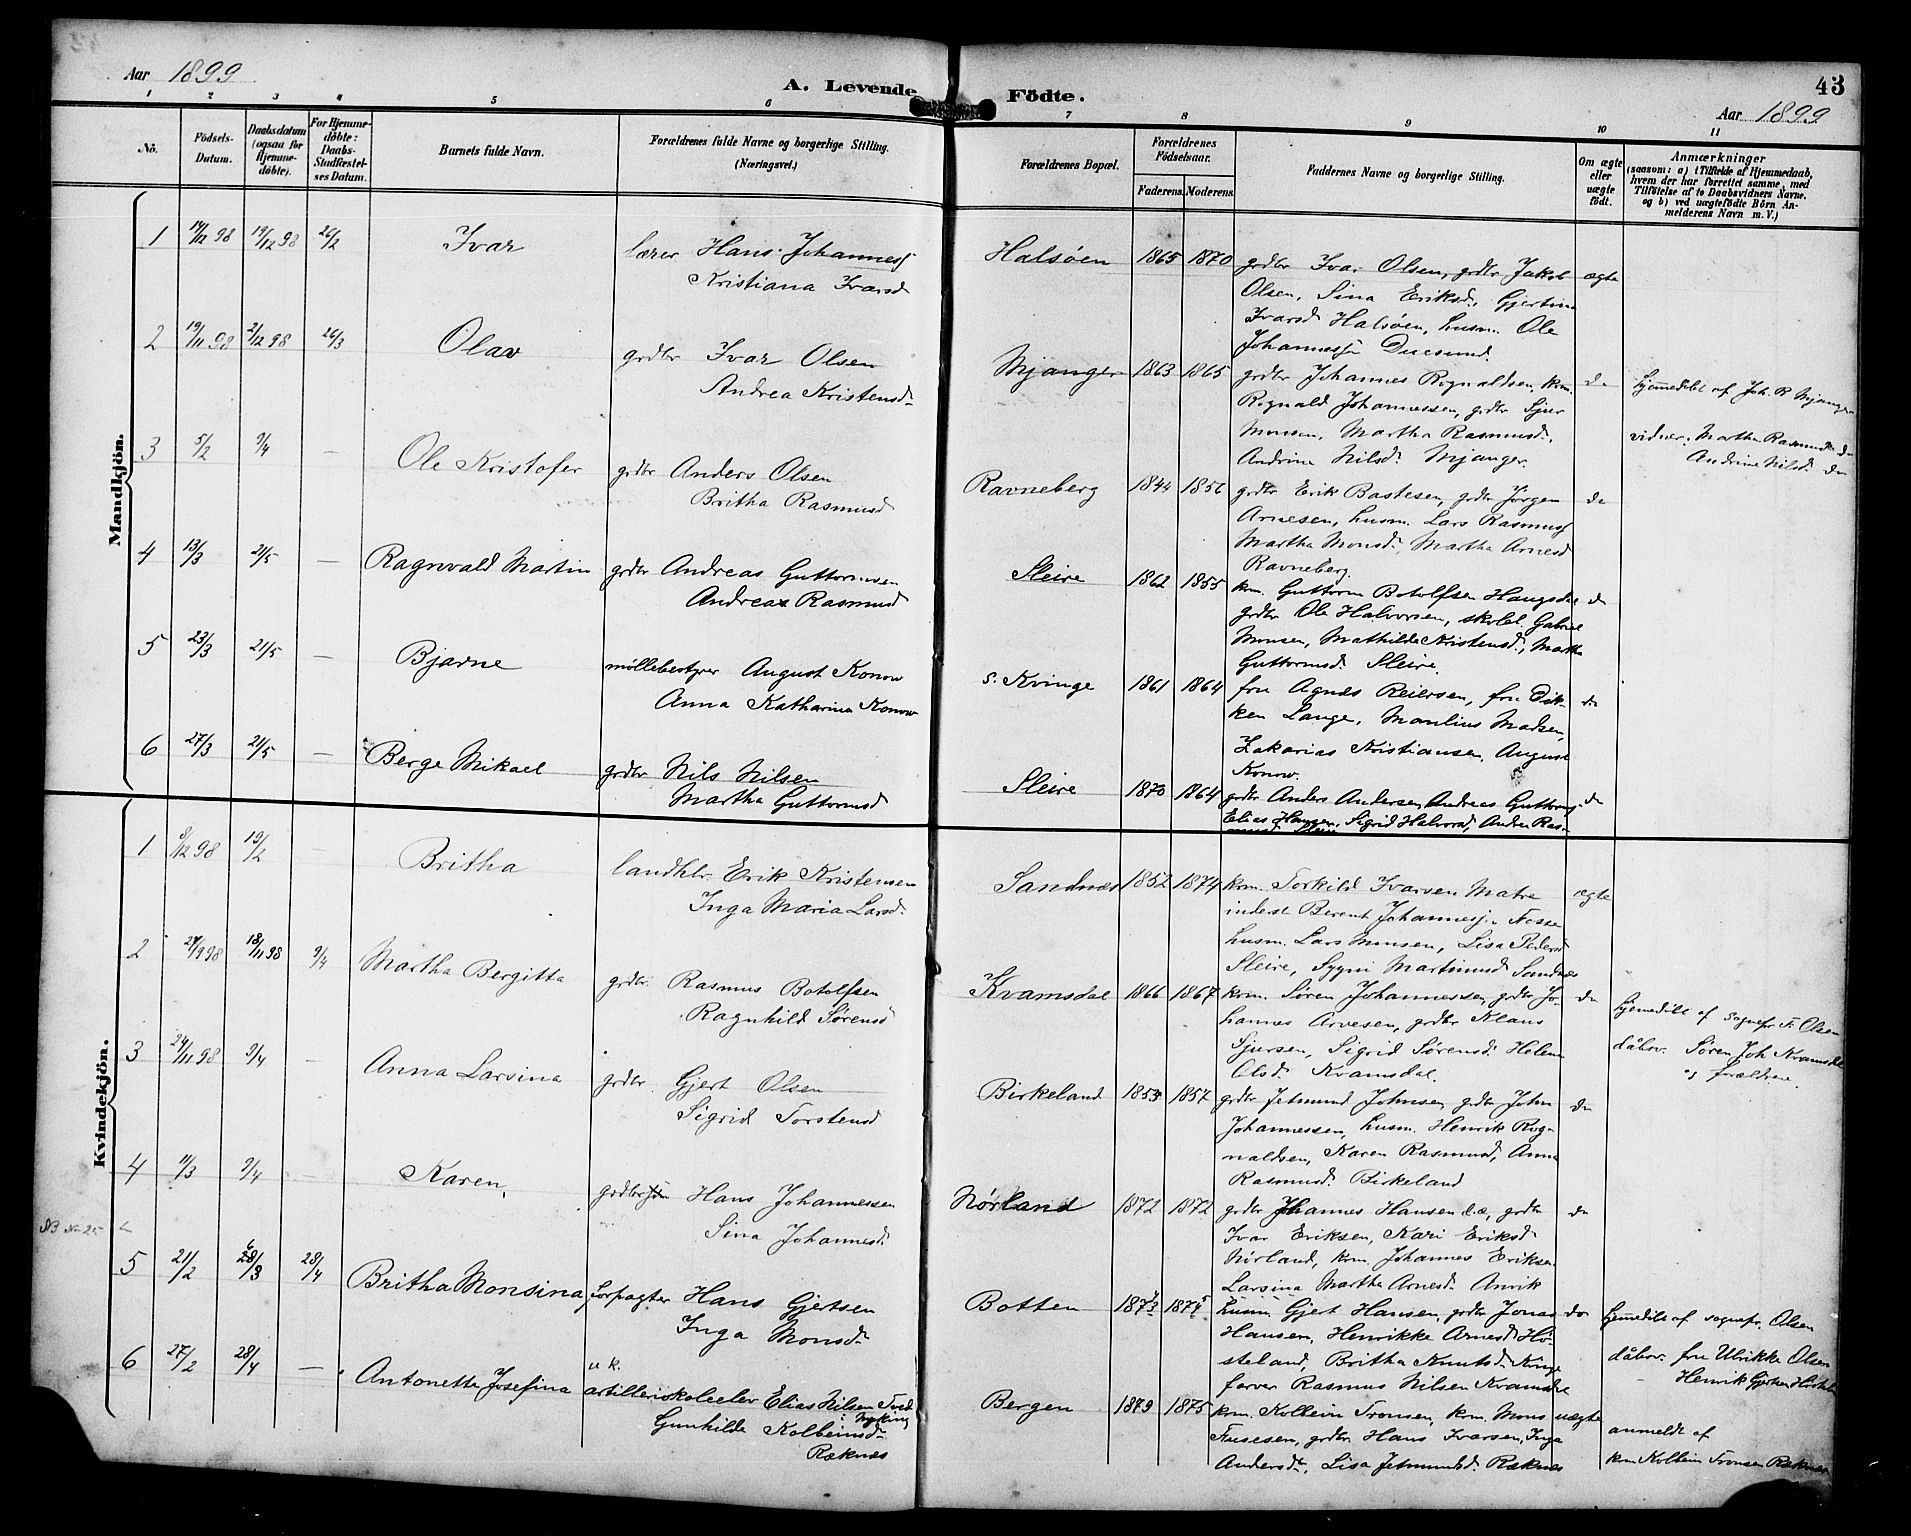 Aar 1899
A. Levende Födte.
43
Aar 1899
1 2 3 4 5 6 7 8 9 10 11
No.
Födsels-Datum.
Daabsdatum (ogsaa for Hjemmedöbte).
For Hjemmedöbte: Daabs-Stadfæstelses Datum.
Barnets fulde Navn.
Forældrenes fulde Navne og borgerlige Stilling. (Næringsvei.)
Forældrenes Bopæl.
Forældrenes Födselsaar.
Faderens. Moderens.
Faddernes Navne og borgerlige Stilling.
Om ægte eller uægte födt.
Anmærkninger
(saasom: a) i Tilfælde af Hjemmedaab,
hvem der har forrettet samme, med
Tilföielse af to Daabsvidners Navne.
og b) ved uægtefödte Börn An-
melderens Navn m. V.)
Mandkjön.
1 14/12 98 19/12 98 26/2 Ivar lærer Hans Johanness
Kristiana Ivarsd
Halsöen 1865 1870 grdbr Ivar Olsen, grdbr Jakob ægte
Olsen, Sina Eriksd., Gjertina
Ivarsd Halsöen, husm. Ole
Johanness Duesund.
2 19/11 98 2/12 98 26/3 Olav grdbr Ivar Olsen
Andrea Kristensd.
Mjanger 1863 1865 grdbr Johannes Rognaldsen, krm. do
Rognald Johannessen, grdbr Sjur
Monsen, Martha Rasmusd.,
Andrine Nilsd. Mjanger.
hjemmedöbt af Joh. R Mjanger
vidner. Martha Rasmusd. do
Andrine Nilsd. do
3 5/2 9/4 — Ole Kristofer grdbr Anders Olsen
Britha Rasmusd
Ravneberg 1844 1856 grdbr Erik Bastesen, grdbr Jörgen do
Arnesen, husm. Lars Rasmuss
Martha Monsd., Martha Arnesd
Ravneberg.
4 13/3 21/5 — Ragnvald Martin grdbr Andreas Guttormsen
Andrea Rasmusd
Sleire 1862 1855 krm. Guttorm Botolfsen Haugsdal do
grdbr Ole Halvorsen, skolel. Gabriel
Monsen, Mathilde Kristensd., Martha
Guttormsd. Sleire.
5 23/3 21/5 — Bjarne möllebestyrer August Konow
Anna Katharina Konow
s. Kvinge 1861 1864 fru Agnes Reiersen, fru Dik- do
ken Lange, Manlius Madsen,
Zakarias Kristiansen, August
Konow.
6 27/3 21/5 — Berge Mikael grdbr Nils Nilsen
Martha Guttormsd
Sleire 1870 1864 grdbr Anders Andersen, Andreas Guttorms- do
Elias Hansen, Sigrid Halvorsd, Andrea Ras-
musd Sleire
Kvindekjön.
1 9/12 98 19/2 — Britha landhlr. Erik Kristensen
Inga Maria Larsd.
Sandnæs 1852 1874 krm. Torkild Ivarsen Matre ægte
inderst Berent Johanness. Nesse
husm. Lars Monsen, Lisa Pedersd
Sleire, Sygni Martinusd Sandnæs
2 27/9 98 18/11 98 9/4 Martha Bergitta grdbr. Rasmus Botolfsen
Ragnhild Sörensd
Kvamsdal 1866 1867 krm. Sören Johannessen, grdbr Jo- do
hannes Arvesen, grdbr Klaus
Sjursen, Sigrid Sörensd. Helene
Olsd. Kvamsdal.
hjemmedöbt af sognepr. F. Olsen
dåbsv. Sören Joh Kvamsdal
og forældrene.
3 24/11 98 9/4 — Anna Larsina grdbr. Gjert Olsen
Sigrid Torstensd
Birkeland 1853 1857 grdbr Jetmund Johnsen, grdbr John do
Johannessen, husm. Henrik Rog-
naldsen, Karen Rasmusd, Anna
Rasmusd. Birkeland
4 11/3 9/4 — Karen, grdbrsön Hans Johannessen
Sina Johannesd.
Nörland 1872 1872 grdbr Johannes Hansen l.æ, grdbr do
Ivar Eriksen, Kari Eriksd
Nörland, krm. Johannes Eriksen
Larsina Martha Arnesd. Anvik
NB No 25
5 21/2 6/3 28/4 Britha Monsina forpagter Hans Gjertsen
Inga Monsd.
Botten 1873 1874 husm. Gjert Hansen, grdbr Jonas do
Hansen, Henrikke Arnesd Hö-
steland, Britha Knutsd. Kvinge
farver Rasmus Nilsen Kvamsdal
hjemmedöbt af sognepr. Olsen
dåbsv. fru Ulrikke Olsen
Henrik Gjertsen Höstel.
6 27/2 28/4 — Antonette Josefina u.k.
artilleriskoleelev Elias Nilsen Tved
Gunhilde Kolbeinsd.
Ræknes
Bergen 1879 1875 krm. Kolbein Tronsen, krm. Mons uægte
Tusesen, grdbr. Hans Ivarsen, Inga
Andersdr., Lisa Jetmundsd. Ræknes
anmeldt af
krm Kolbein Tronsen Ræknes